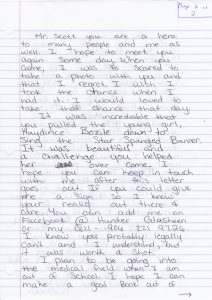 Page 2 of 2
Mr Scott you are a hero
to many people and me as
well. I hope to meet you
again some day. When you
came, I was to scared to
take a photo with you and
that I regret. I wish I
took the chance when I
had it. I would loved to
take that chance at a day.
It was incredible that
you pulled the young girl,
down to
Sing the Star Spangled Banner.
It was beautiful and
a Challenge you helped
her over come. I
hope you can keep in touch
with me after this letter
goes out. If you could give
me a Sign So I know
your reality out there &
care. You can add me on
Facebook @ Hunter
or my cell -
I know you probably legally
can't and I understand, but
it was worth a Shot.
I plan to be going into
the medical field when I am
out of School. I hope I can
make a good Book out of